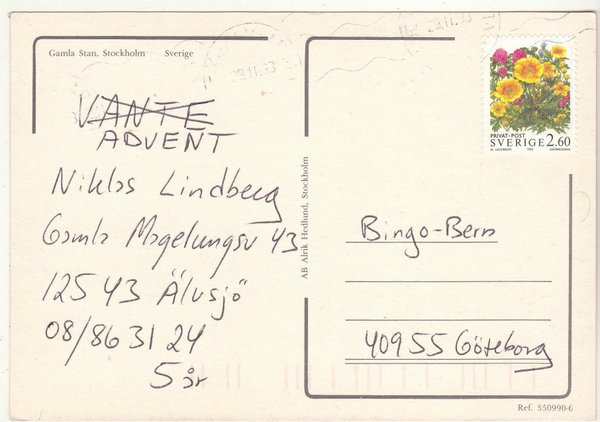 Gamla Stan, Stockholm Sverige
29.11.93
29.11.93
PRIVAT-POST
SVERIGE 2.60
VANTE
ADVENT
Niklas Lindberg
Gamla Magelungsv 43
125 43 Älvsjö
08/86 31 24
5 år
AB Alrik Hedlund, Stockholm
Bingo-Bern
409 55 Göteborg
Ref. S50990-6